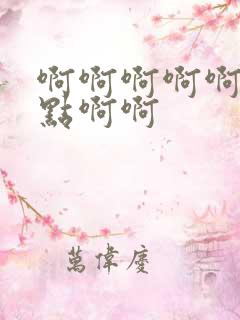 啊啊啊啊啊
點啊啊
萬偉慶